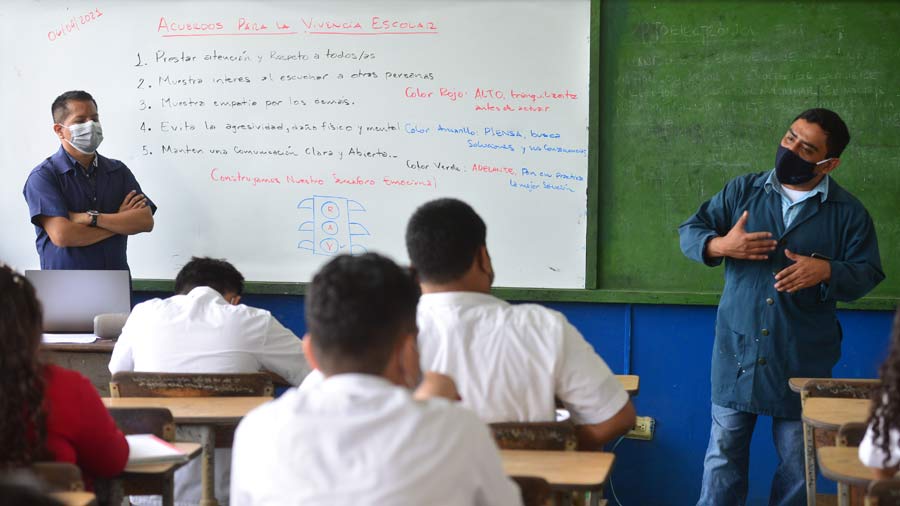 06/04/2021
Acuerdos Para la Vivencia Escolar
1. Prestar atención y Respeto a todos/as
2. Muestra interes al escuchar a otras personas
3. Muestro empatia por los demas.
4. Evita la agresividad, daño físico y mental
5. Manten una comunicación Clara y Abierta..
Color Rojo: ALTO, tranquilizante
antes de actuar
Color Amarillo: PIENSA, busca
Soluciones y sus Consecuencias
Color Verde: ADELANTE, Pon en practica
la mejor Solución
Construyamos Nuestro Semaforo Emocional
R
A
V